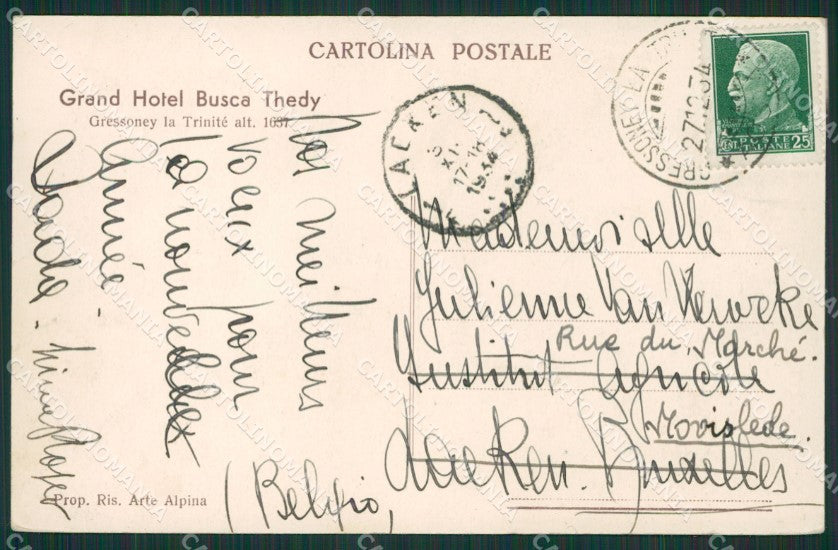 CARTOLINA POSTALE
Grand Hotel Busca Thedy
Gressoney la Trinité alt. 1637
Nos meilleurs
voeux pour
la nouvelle
année -
Prop. Ris. Arte Alpina
LAEKEN
17-18
1934
GRESSONEY LA TRINITÉ
27.12.34
POSTE
ITALIANE
CENT. 25
Mademoiselle
Julienne Van
Rue du Marché.
Institut agricole
Laeken. Bruxelles
(Belgio)
CARTOLINOMANIA